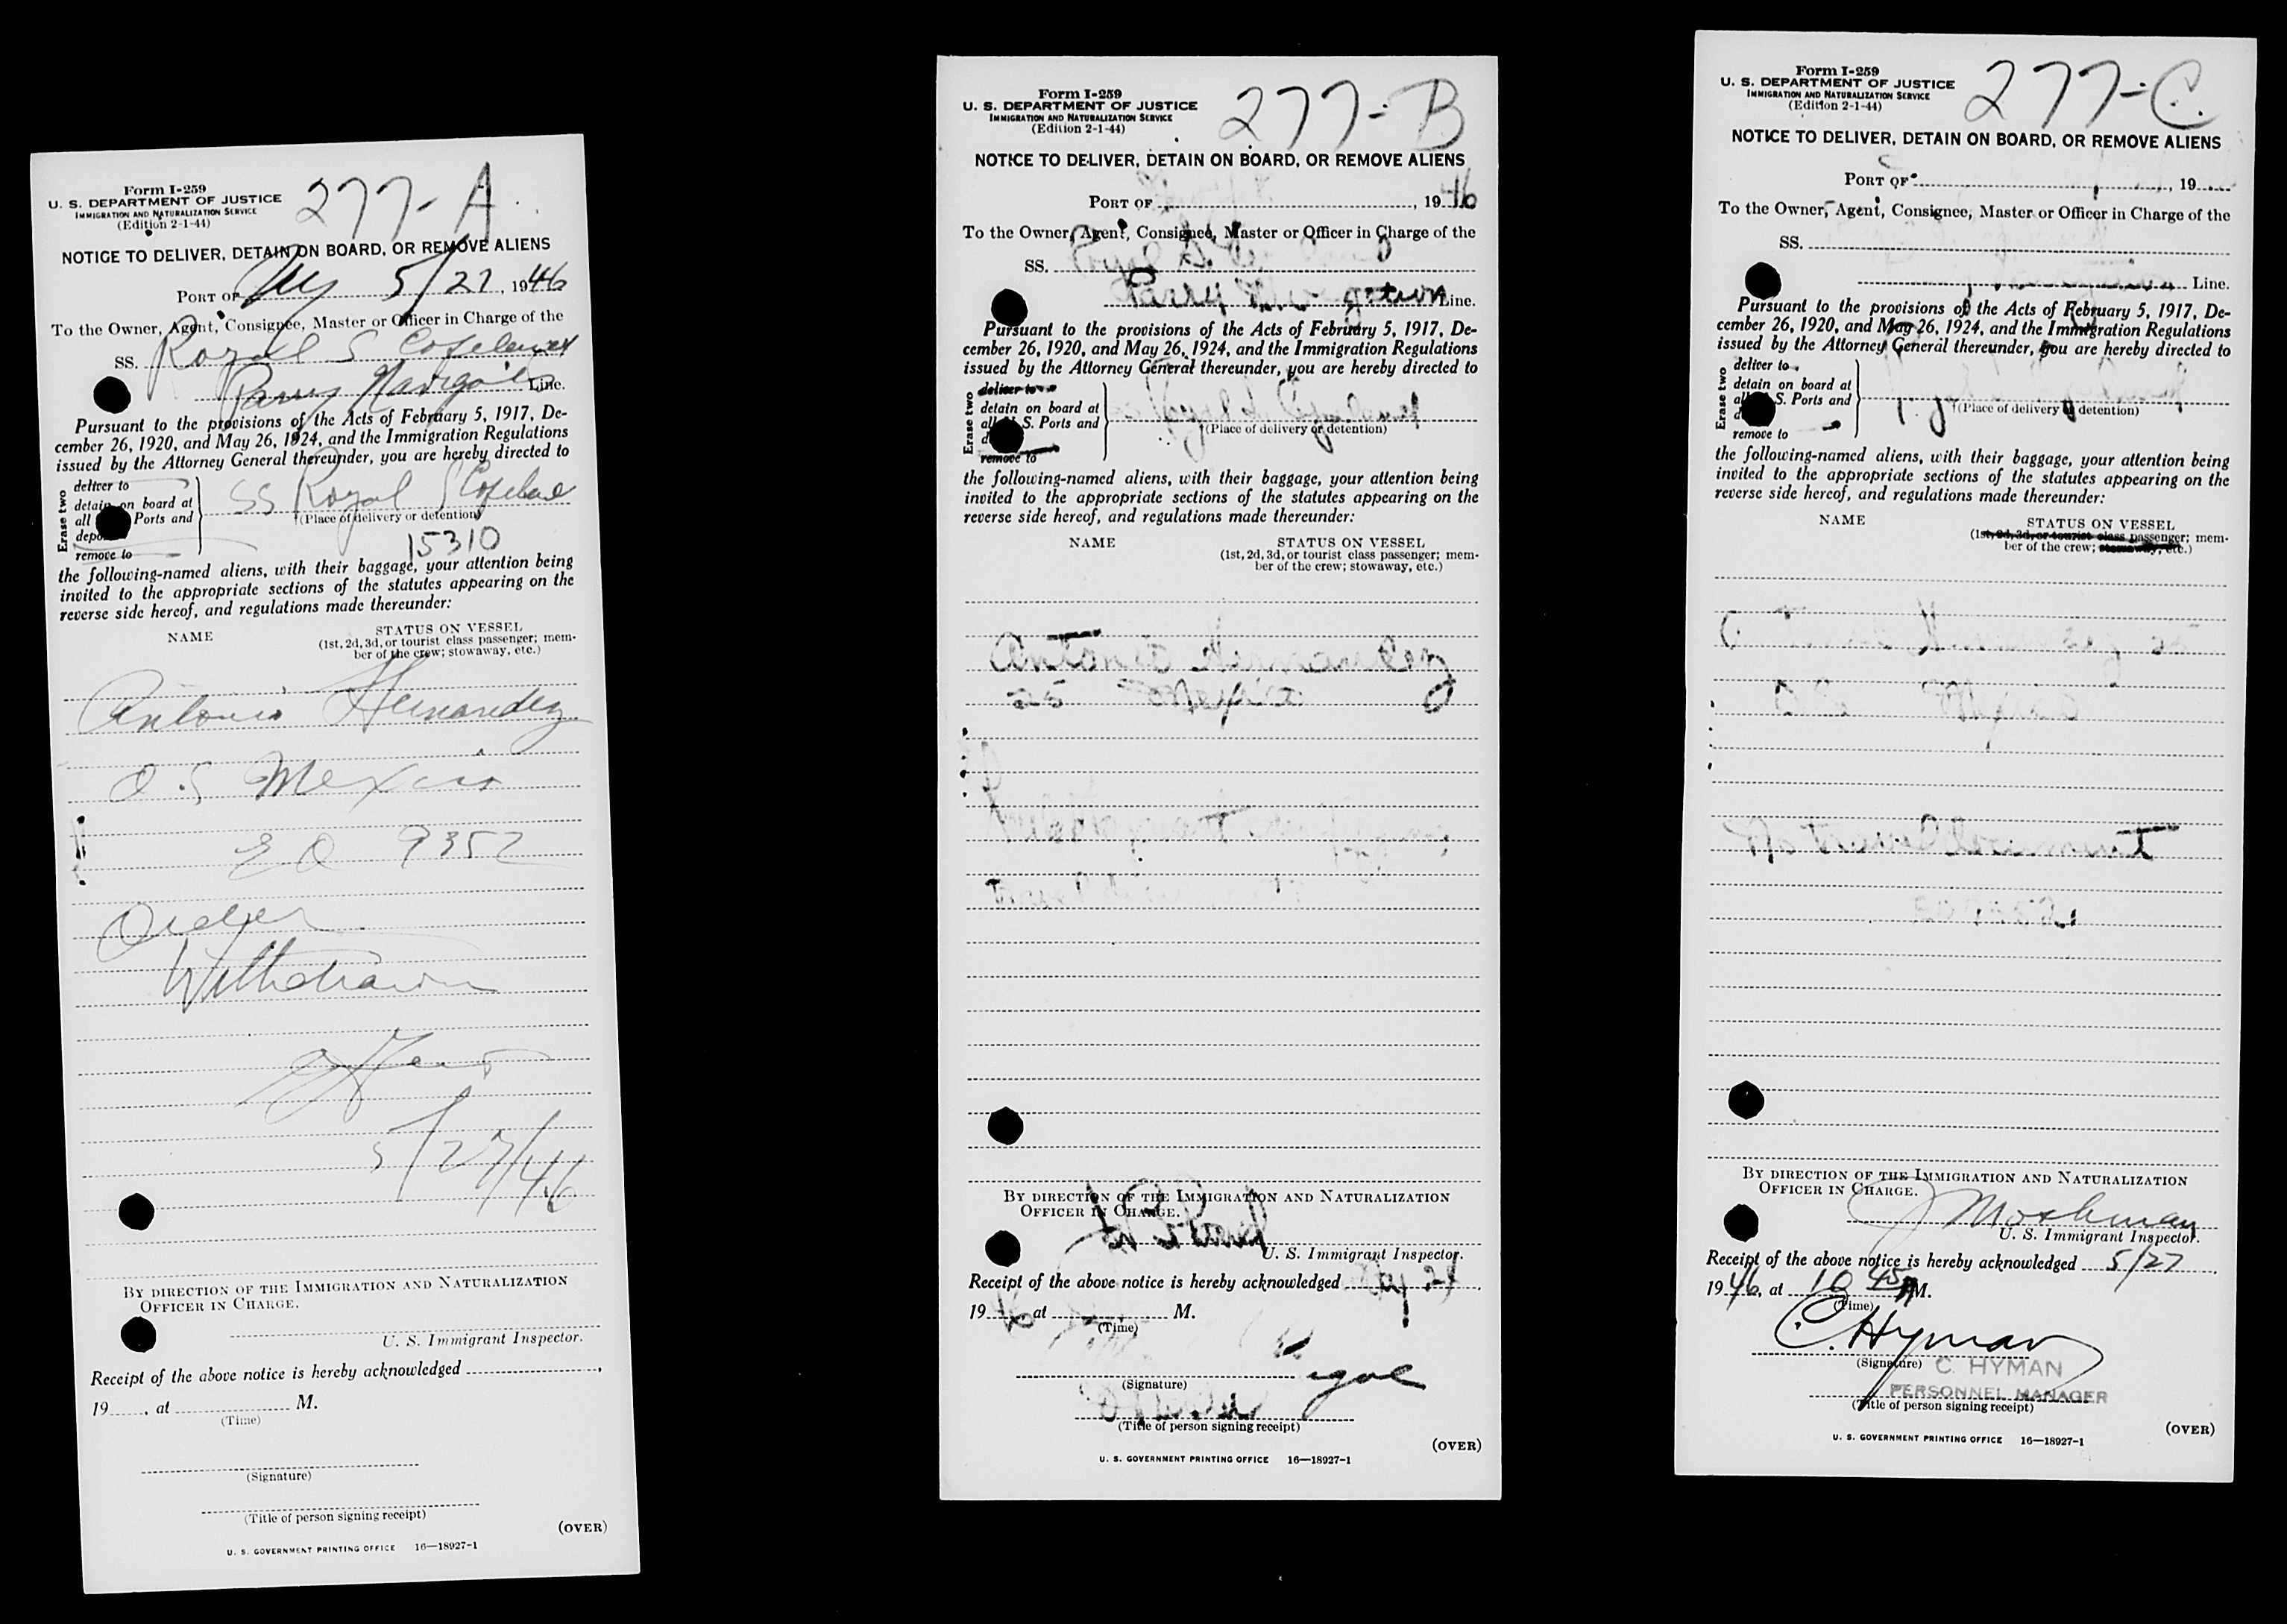 277-A
Form I-259
U. S. DEPARTMENT OF JUSTICE
IMMIGRATION AND NATURALIZATION SERVICE
(Edition 2-1-44)
NOTICE TO DELIVER, DETAIN ON BOARD, OR REMOVE ALIENS
PORT OF NY 5/27, 1946
To the Owner, Agent, Consignee, Master or Officer in Charge of the
SS. Royal S Copeland
Parry Line.
Pursuant to the provisions of the Acts of February 5, 1917, De-
cember 26, 1920, and May 26, 1924, and the Immigration Regulations
issued by the Attorney General thereunder, you are hereby directed to
Erase two
deliver to
detain on board at
all Ports and
remove to
SS Royal S Copeland
(Place of delivery or detention)
15310
the following-named aliens, with their baggage, your attention being
invited to the appropriate sections of the statutes appearing on the
reverse side hereof, and regulations made thereunder:
NAME
STATUS ON VESSEL
(1st, 2d, 3d, or tourist class passenger; mem-
ber of the crew; stowaway, etc.)
Antonio Hernandez
O.S Mexico
E O 9352
Order
Withdrawn
5/27/46
BY DIRECTION OF THE IMMIGRATION AND NATURALIZATION
OFFICER IN CHARGE.
U. S. Immigrant Inspector.
Receipt of the above notice is hereby acknowledged
19, at M.
(Time)
(Signature)
(Title of person signing receipt)
(OVER)
U. S. GOVERNMENT PRINTING OFFICE 16—18927-1
277-B
Form I-259
U. S. DEPARTMENT OF JUSTICE
IMMIGRATION AND NATURALIZATION SERVICE
(Edition 2-1-44)
NOTICE TO DELIVER, DETAIN ON BOARD, OR REMOVE ALIENS
PORT OF , 1946
To the Owner, Agent, Consignee, Master or Officer in Charge of the
SS. Royal S.
Parry Navigation Line.
Pursuant to the provisions of the Acts of February 5, 1917, De-
cember 26, 1920, and May 26, 1924, and the Immigration Regulations
issued by the Attorney General thereunder, you are hereby directed to
Erase two
deliver to
detain on board at
all S. Ports and
remove to
(Place of delivery or detention)
the following-named aliens, with their baggage, your attention being
invited to the appropriate sections of the statutes appearing on the
reverse side hereof, and regulations made thereunder:
NAME
STATUS ON VESSEL
(1st, 2d, 3d, or tourist class passenger; mem-
ber of the crew; stowaway, etc.)
Antonio Hernandez
Mexico
BY DIRECTION OF THE IMMIGRATION AND NATURALIZATION
OFFICER IN CHARGE.
U. S. Immigrant Inspector.
Receipt of the above notice is hereby acknowledged
19 at M.
(Time)
(Signature)
(Title of person signing receipt)
(OVER)
U. S. GOVERNMENT PRINTING OFFICE 16—18927-1
277-C
Form I-259
U. S. DEPARTMENT OF JUSTICE
IMMIGRATION AND NATURALIZATION SERVICE
(Edition 2-1-44)
NOTICE TO DELIVER, DETAIN ON BOARD, OR REMOVE ALIENS
PORT OF , 19
To the Owner, Agent, Consignee, Master or Officer in Charge of the
SS.
Line.
Pursuant to the provisions of the Acts of February 5, 1917, De-
cember 26, 1920, and May 26, 1924, and the Immigration Regulations
issued by the Attorney General thereunder, you are hereby directed to
Erase two
deliver to
detain on board at
S. Ports and
remove to
(Place of delivery or detention)
the following-named aliens, with their baggage, your attention being
invited to the appropriate sections of the statutes appearing on the
reverse side hereof, and regulations made thereunder:
NAME
STATUS ON VESSEL
(1st, 2d, 3d, or tourist class passenger; mem-
ber of the crew; stowaway, etc.)
BY DIRECTION OF THE IMMIGRATION AND NATURALIZATION
OFFICER IN CHARGE.
J Moskman
U. S. Immigrant Inspector.
Receipt of the above notice is hereby acknowledged 5/27,
1946, at 10 45 AM.
(Time)
C. Hyman
(Signature) C. HYMAN
PERSONNEL MANAGER
(Title of person signing receipt)
(OVER)
U. S. GOVERNMENT PRINTING OFFICE 16—18927-1